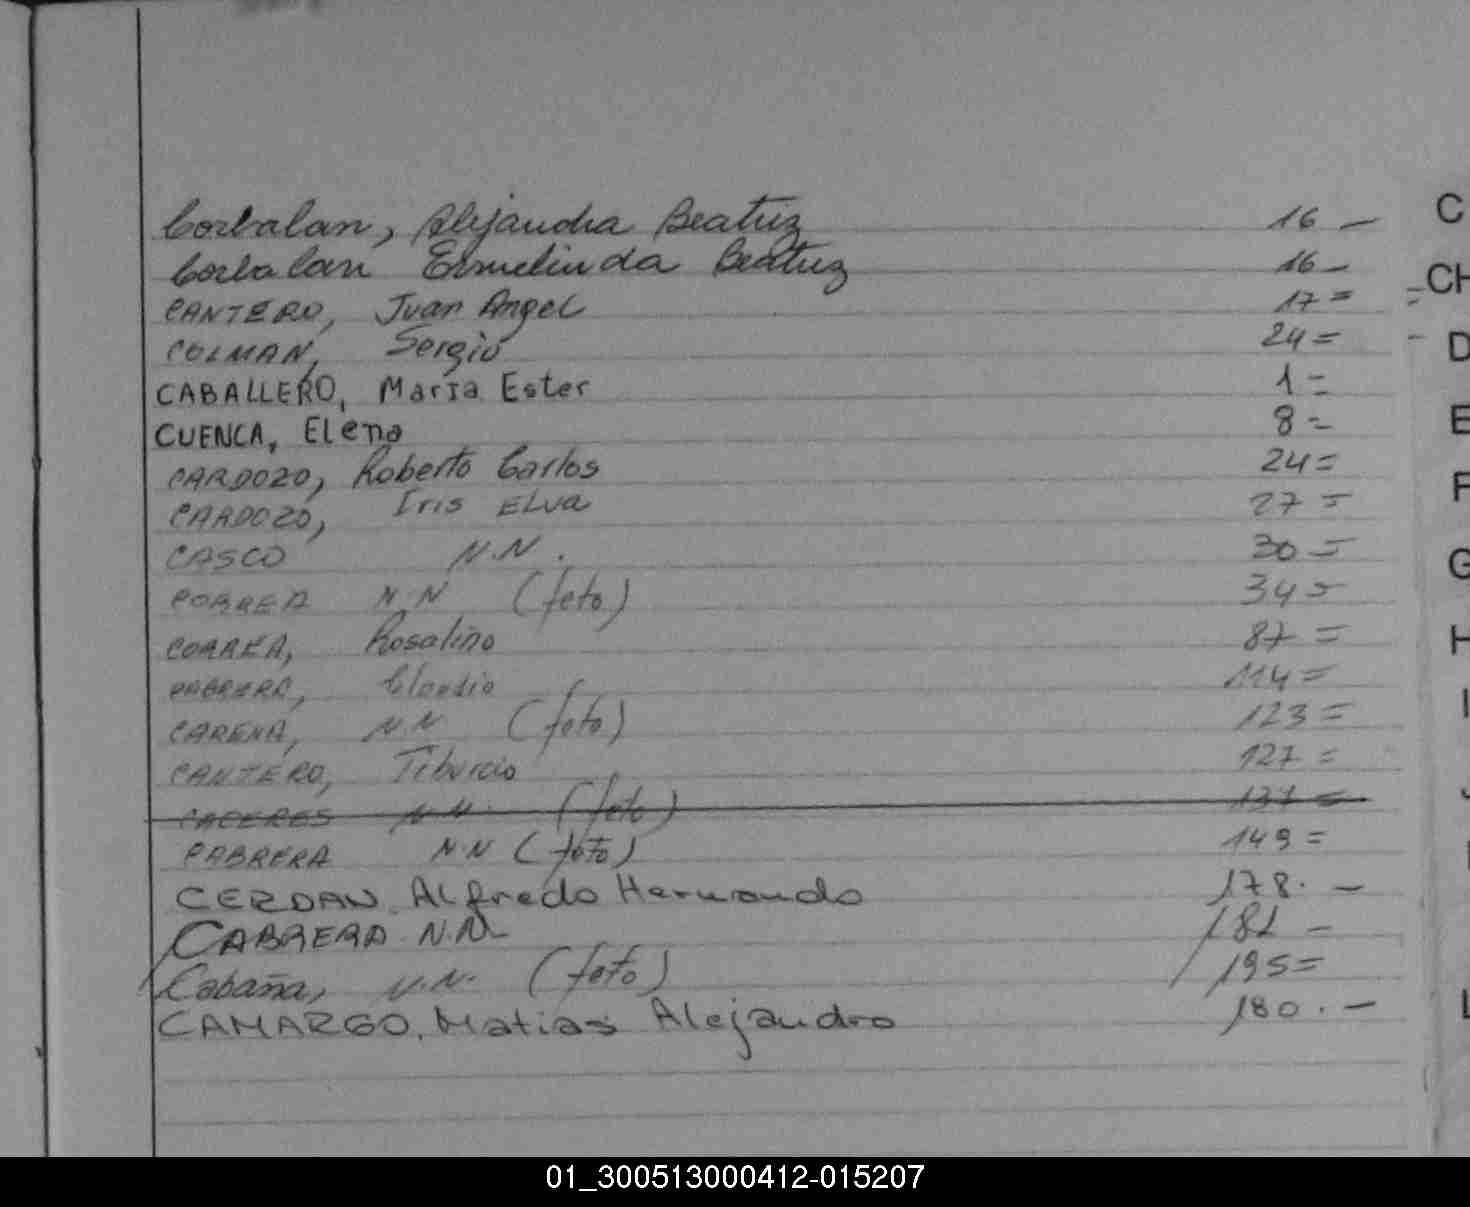 Corbalan, Alejandra Beatriz 16 -
Corbalan Ermelinda Beatriz 16 -
CANTERO, Juan Angel 17 =
COLMAN, Sergio 24 =
CABALLERO, Maria Ester 1 =
CUENCA, Elena 8 =
CARDOZO, Roberto Carlos 24 =
CARDOZO, Iris ELva 27 =
CASCO N.N. 30 =
CORREA N.N (feto) 34 =
CORREA, Rosalino 87 =
CABRERA, Claudio 114 =
CARENA, N.N (feto) 123 =
CANTERO, Tiburcio 127 =
CACERES N.N. (feto) 137 =
CABRERA N.N (feto) 149 =
CERDAN, Alfredo Hernando 178. -
CABRERA N.N- 181 -
Cabaña, N.N. (feto) 195 =
CAMARGO, Matias Alejandro 180. -
C
CH
D
E
F
G
H
I
J
L
01_300513000412-015207